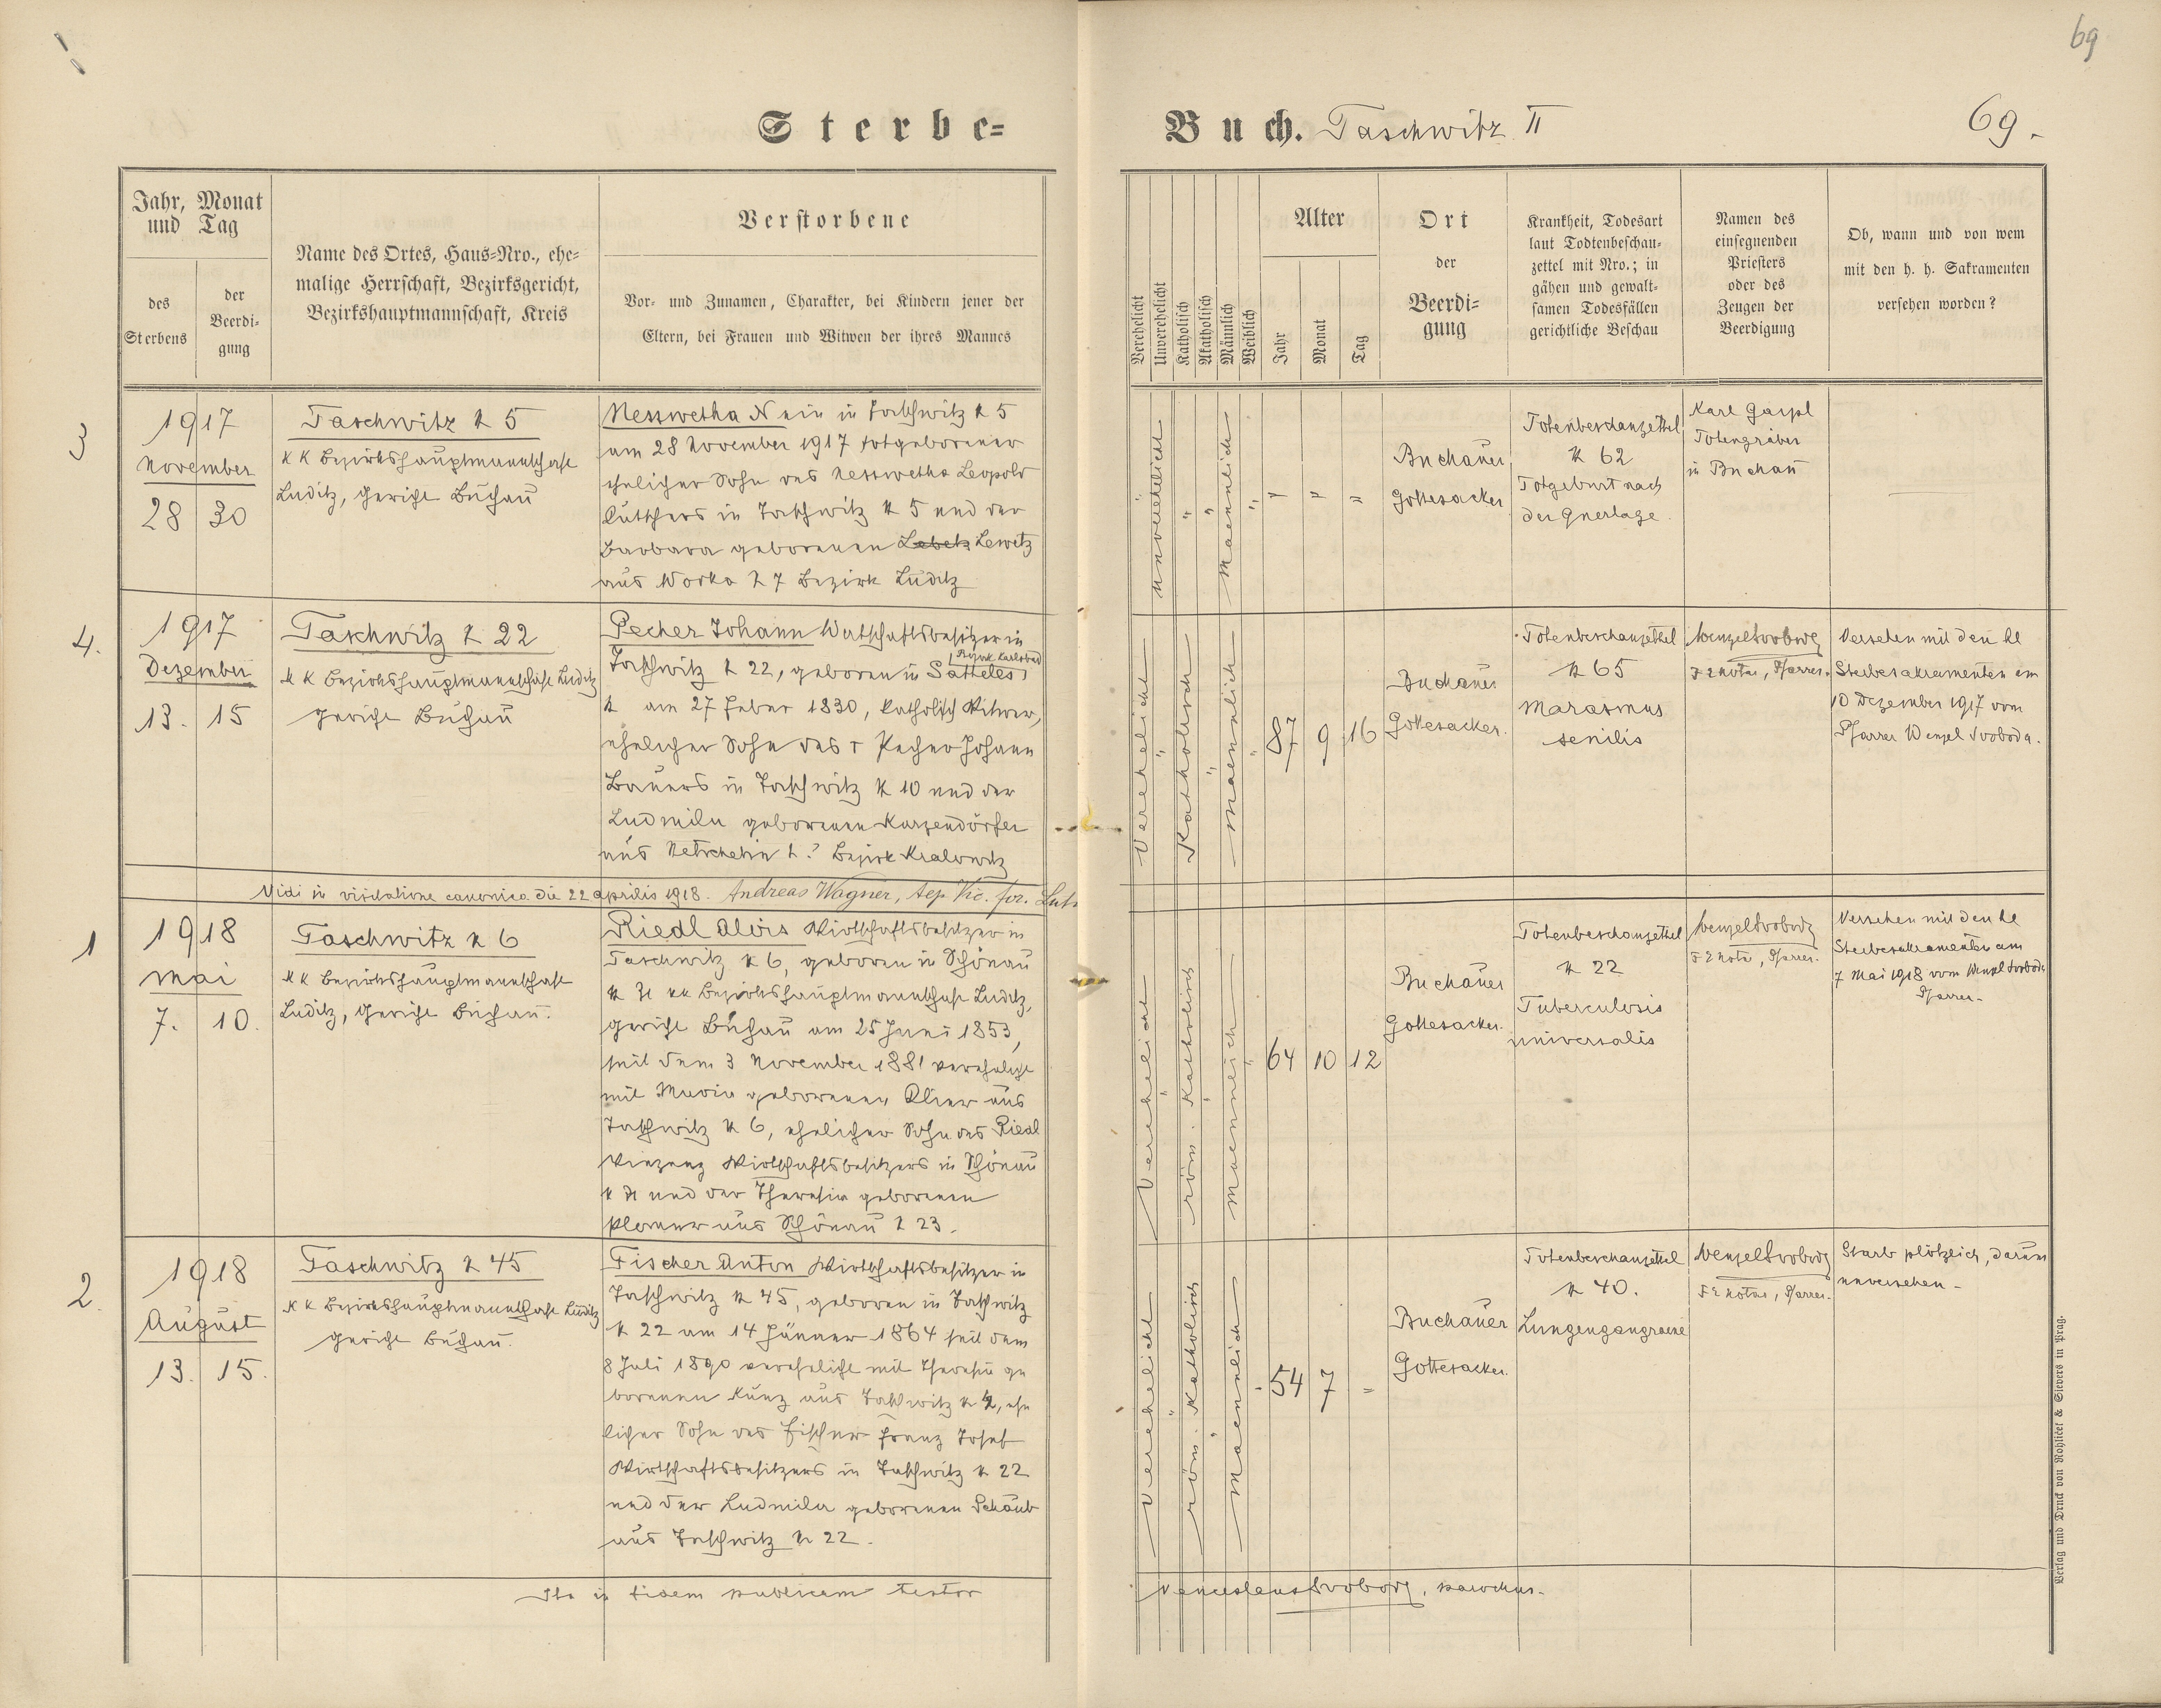 69
Sterbe-
Buch. Taschwitz II
69.
Jahr, Monat
und Tag
des
Sterbens
der
Beerdi-
gung
Name des Ortes, Haus-Nro., ehe-
malige Herrschaft, Bezirksgericht,
Bezirkshauptmannschaft, Kreis
Verstorbene
Vor- und Zunamen, Charakter, bei Kindern jener der
Eltern, bei Frauen und Witwen der ihres Mannes
Verehelicht
Unverehelicht
Katholisch
Akatholisch
Männlich
Weiblich
Alter
Jahr
Monat
Tag
Ort
der
Beerdi-
gung
Krankheit, Todesart
laut Todtenbeschau-
zettel mit Nro.; in
gähen und gewalt-
samen Todesfällen
gerichtliche Beschau
Namen des
einsegnenden
Priesters
oder des
Zeugen der
Beerdigung
Ob, wann und von wem
mit den h. h. Sakramenten
versehen worden?
3
1917
November
28 30
Taschwitz N 5
K K Bezirkshauptmannschaft
Luditz, Gericht Buchau
Nesswetha N ein in Taschwitz N 5
am 28 November 1917 totgeborener
ehelicher Sohn des Nesswetha Leopold
Kutschers in Taschwitz N 5 und der
Barbara geborenen Lewitz
aus Worka N 7 Bezirk Luditz
Unverehelicht
Maennlich
Buchauer
Gottesacker
Totenbeschauzettel
N 62
Totgeburt nach
der Querlage
Karl
Totengräber
in Buchau
4.
1917
Dezember
13. 15
Taschwitz N 22
K K Bezirkshauptmannschaft Luditz
Gericht Buchau
Pecher Johann Wirtschaftsbesitzer in
Bezirk Karlsbad
Taschwitz N 22, geboren in Satteles,
N am 27 Feber 1830, katholisch Witwer,
ehelicher Sohn des † Pecher Johann
Bauers in Taschwitz N 10 und der
Ludmila geborenen Kurzendörfer
aus Netschetin N ? Bezirk Kralowitz
Verehelicht
Katholisch
Maennlich
87 9 16
Buchauer
Gottesacker.
Totenbeschauzettel
N 65
Marasmus
senilis
Wenzel Svoboda
Pfarrer.
Versehen mit den hl
Sterbesakramenten am
10 Dezember 1917 vom
Pfarrer Wenzel Svoboda.
Vidi in visitatione canonica die 22 aprilis 1918. Andreas Wagner, Aep. Vic. for.
1
1918
Mai
7. 10.
Taschwitz N 6
K K Bezirkshauptmannschaft
Luditz, Gericht Buchau.
Riedl Alois Wirtschaftsbesitzer in
Taschwitz N 6, geboren in Schönau
N 21 KK Bezirkshauptmannschaft Luditz,
Gericht Buchau am 25 Juni 1853,
seit dem 3 November 1881 verehelicht
mit Maria geborenen Klier aus
Taschwitz N 6, ehelicher Sohn des Riedl
Vinzenz Wirtschaftsbesitzers in Schönau
N 21 und der Theresia geborenen
Ploner aus Schönau N 23.
Verehelicht
röm. Katholisch
Maennlich
64 10 12
Buchauer
Gottesacker.
Totenbeschauzettel
N 22
Tuberculosis
universalis
Wenzel Svoboda
Pfarrer.
Versehen mit den hl
Sterbesakramenten am
7 Mai 1918 vom Wenzel Svoboda
Pfarrer.
2.
1918
August
13. 15.
Taschwitz N 45
K K Bezirkshauptmannschaft Luditz
Gericht Buchau.
Fischer Anton Wirtschaftsbesitzer in
Taschwitz N 45, geboren in Taschwitz
N 22 am 14 Jänner 1864 seit dem
8 Juli 1890 verehelicht mit Theresia ge
borenen Kunz aus Taschwitz N 4, ehe
licher Sohn des Fischer Franz Josef
Wirtschaftsbesitzers in Taschwitz N 22
und der Ludmila geborenen Schaub
aus Taschwitz N 22.
Verehelicht
röm. Katholisch
Maennlich
54 7 =
Buchauer
Gottesacker.
Totenbeschauzettel
N 40.
Lungengangraene
Wenzel Svoboda
Pfarrer.
Starb plötzlich, darum
unversehen.
Ita in fidem publicam testor
Venceslaus Svoboda, parochus.
Verlag und Druck von Rohlicek & Sievers in Prag.